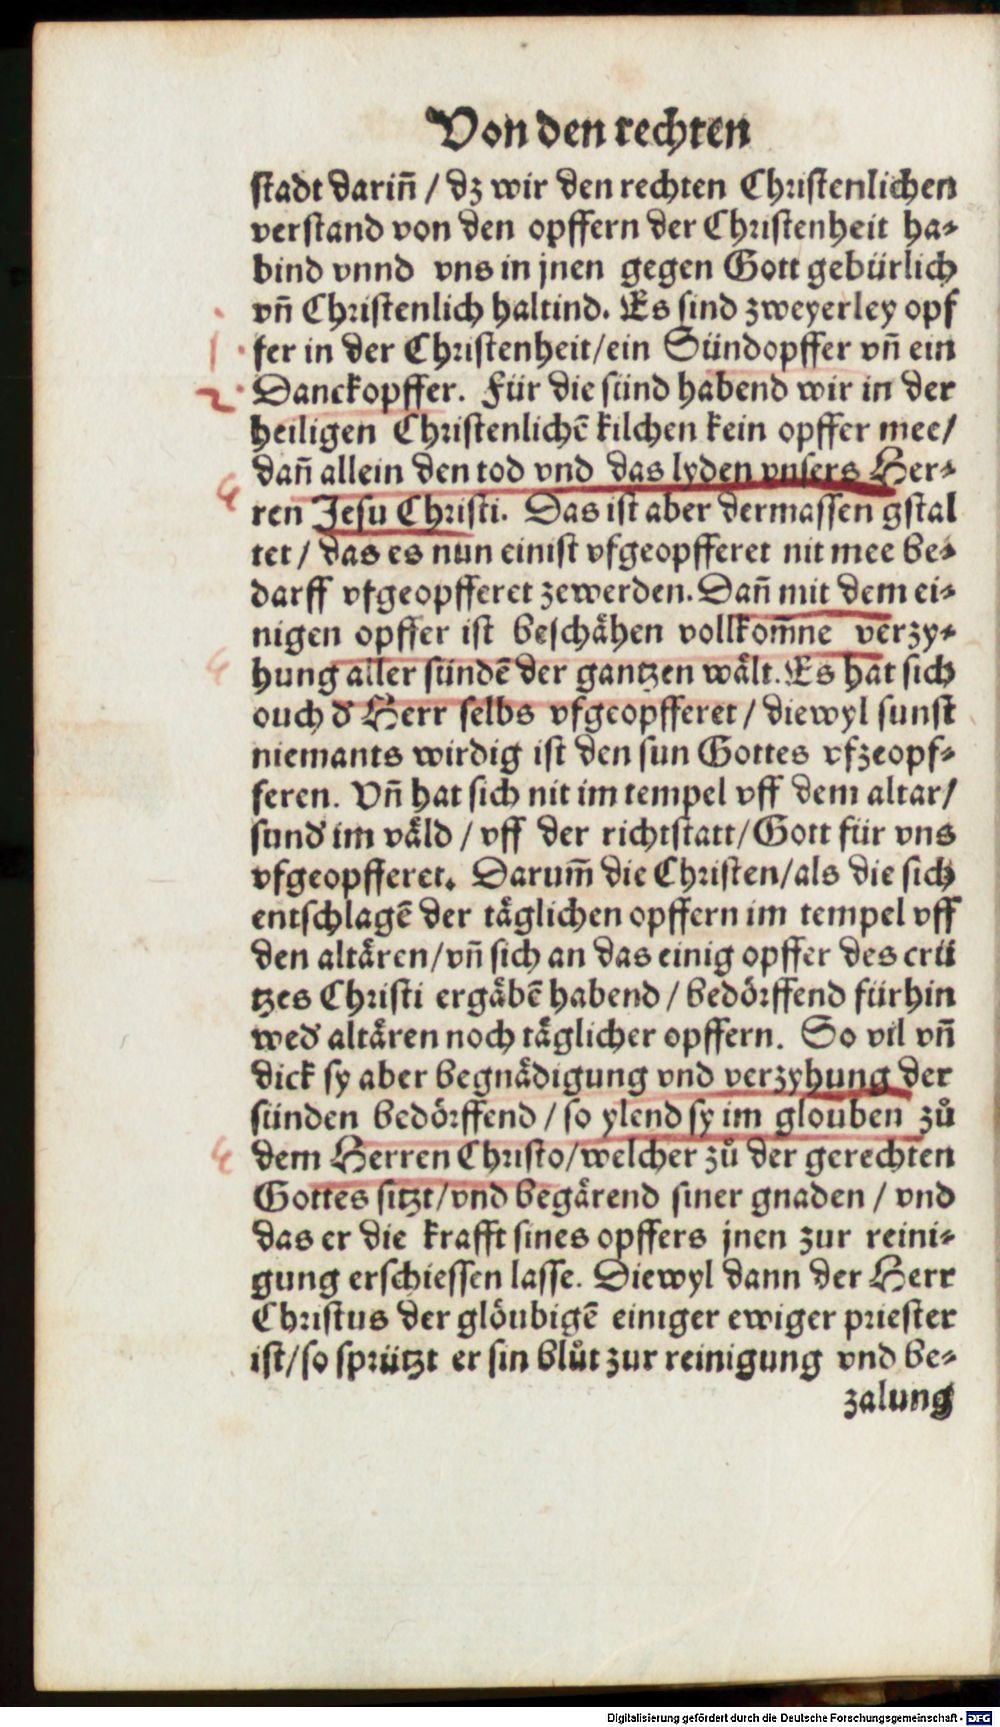 Von den rechten
stadt dariñ / dz wir den rechten Christenlichen
verstand von den opffern der Christenheit ha-
bind vnnd vns in jnen gegen Gott gebürlich
vñ Christenlich haltind. Es sind zweyerley opf
1 fer in der Christenheit/ein Sündopffer vñ ein
2 Danckopffer. Für die sünd habend wir in der
heiligen Christenlichē kilchen kein opffer mee/
dañ allein den tod vnd das lyden vnsers Her-
ren Jesu Christi. Das ist aber dermassen gstal
tet / das es nun einist vfgeopfferet nit mee be-
darff vfgeopfferet zewerden. Dañ mit dem ei-
nigen opffer ist beschähen vollkom̄ne verzy-
hung aller sündē der gantzen wält. Es hat sich
ouch d' Herr selbs vfgeopfferet / diewyl sunst
niemants wirdig ist den sun Gottes vfzeopf-
feren. Vñ hat sich nit im tempel vff dem altar/
sund' im väld / vff der richtstatt/Gott für vns
vfgeopfferet. Darum̄ die Christen/als die sich
entschlagē der täglichen opffern im tempel vff
den altären/vñ sich an das einig opffer des crü
tzes Christi ergäbē habend / bedörffend fürhin
wed' altären noch täglicher opffern. So vil vñ
dick sy aber begnädigung vnd verzyhung der
sünden bedörffend / so ylend sy im glouben zů
dem Herren Christo/welcher zů der gerechten
Gottes sitzt/vnd begärend siner gnaden / vnd
das er die krafft sines opffers jnen zur reini-
gung erschiessen lasse. Diewyl dann der Herr
Christus der glöubigē einiger ewiger priester
ist/so sprützt er sin blůt zur reinigung vnd be-
zalung
Digitalisierung gefördert durch die Deutsche Forschungsgemeinschaft - DFG